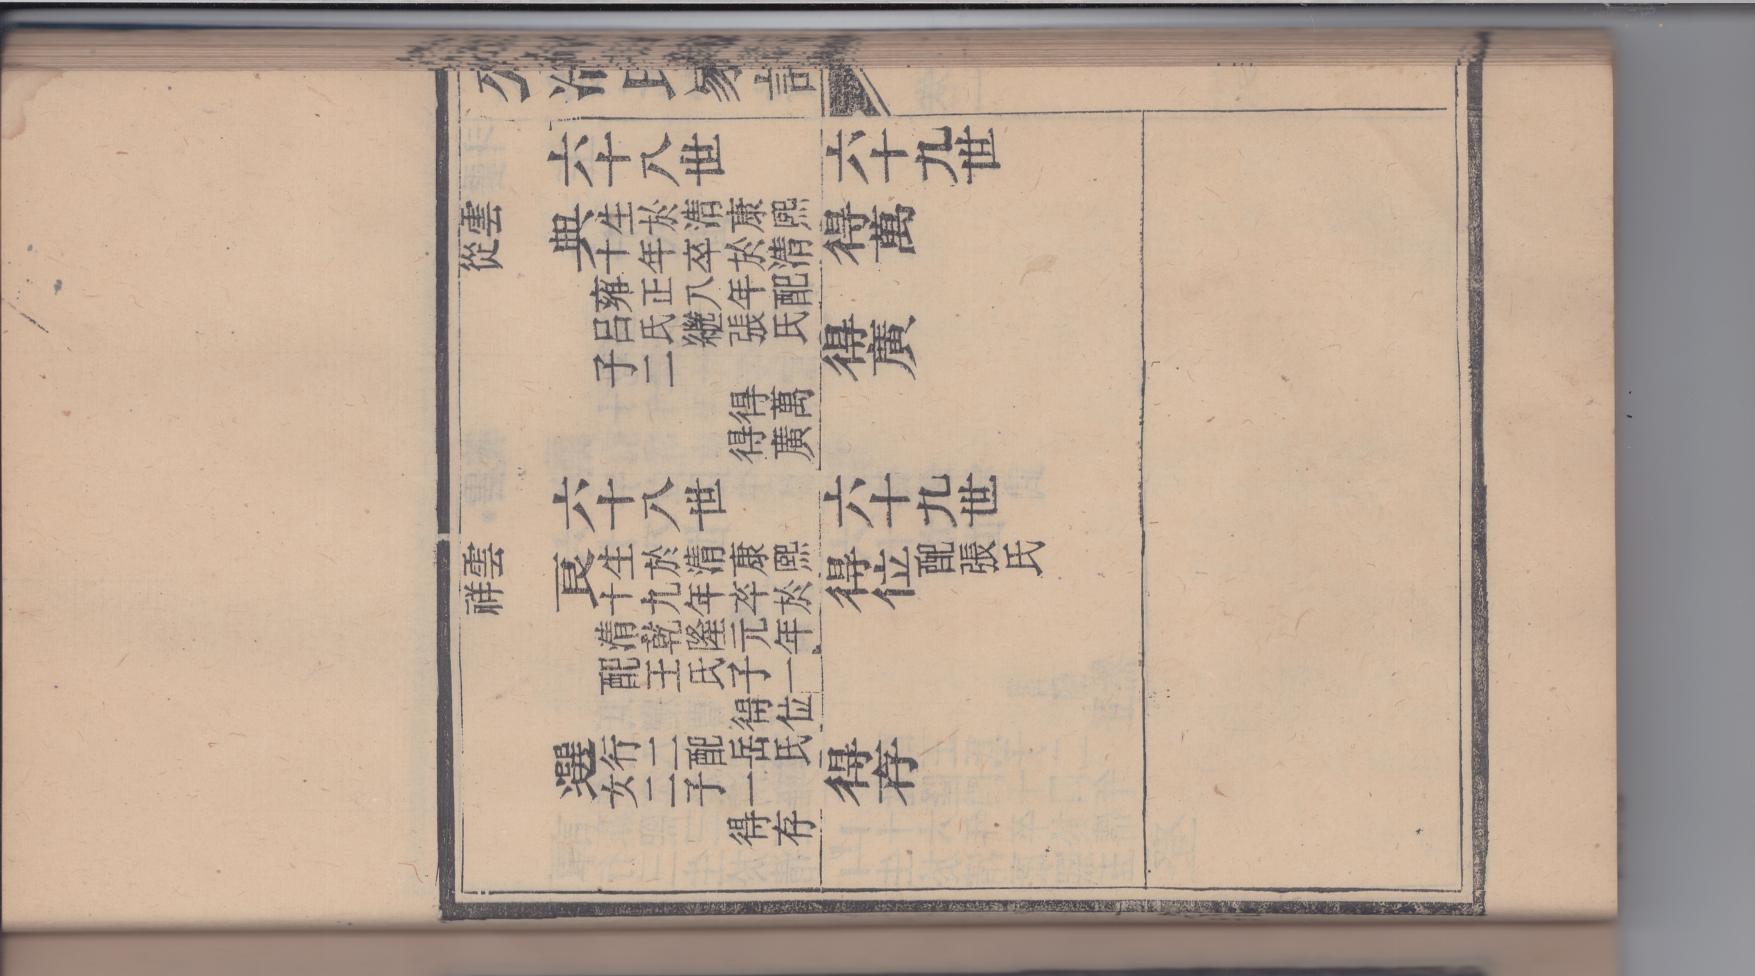 六十八世
雲從
典
生於清康熙
十年卒於清
雍正八年配
呂氏繼張氏
子二
得萬
得廣
六十九世
得萬
得廣
六十八世
雲祥
良
生於清康熙
十九年卒於
清乾隆元年
配王氏子一
得位
選
行二配岳氏
女二子一
得存
六十九世
得位
配張氏
得存